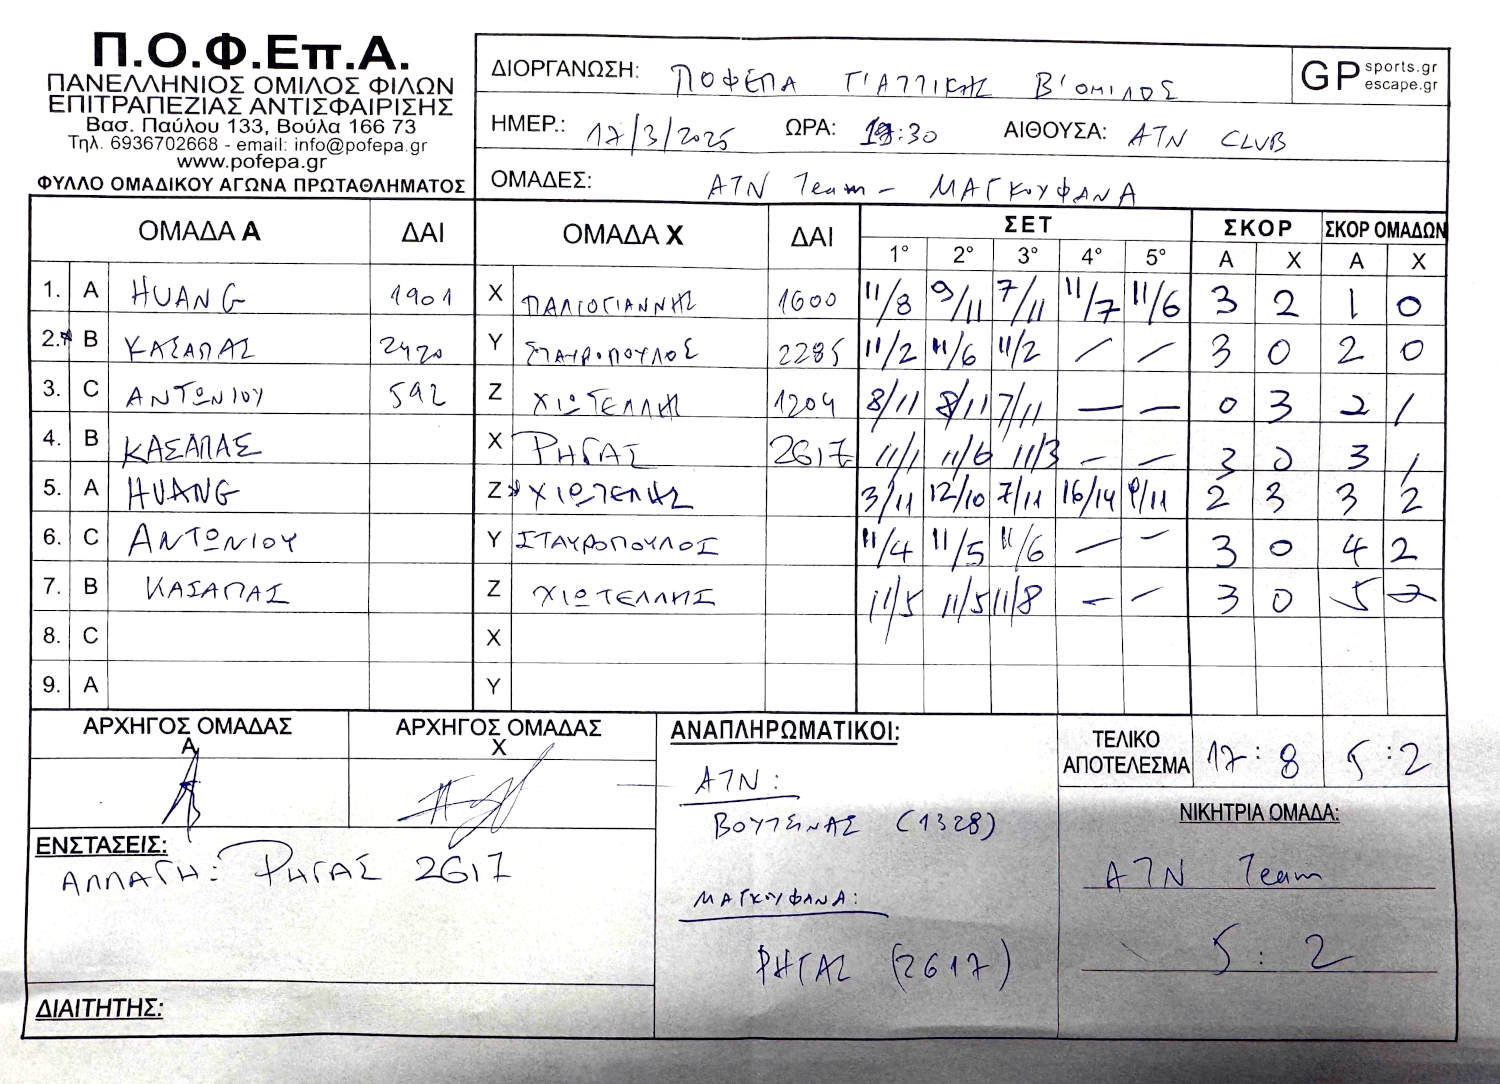 Π.Ο.Φ.Επ.Α.
ΠΑΝΕΛΛΗΝΙΟΣ ΟΜΙΛΟΣ ΦΙΛΩΝ
ΕΠΙΤΡΑΠΕΖΙΑΣ ΑΝΤΙΣΦΑΙΡΙΣΗΣ
Βασ. Παύλου 133, Βούλα 166 73
Τηλ. 6936702668 - email: info@pofepa.gr
www.pofepa.gr
ΦΥΛΛΟ ΟΜΑΔΙΚΟΥ ΑΓΩΝΑ ΠΡΩΤΑΘΛΗΜΑΤΟΣ
ΔΙΟΡΓΑΝΩΣΗ: ΠΟΦΕΠΑ Γ'ΑΤΤΙΚΗΣ Β'ΟΜΙΛΟΣ
GP sports.gr
escape.gr
ΗΜΕΡ.: 17/3/2025 ΩΡΑ: :30 ΑΙΘΟΥΣΑ: ATN CLUB
ΟΜΑΔΕΣ: ATN Team - ΜΑΓΚΟΥΦΑΝΑ
ΟΜΑΔΑ Α ΔΑΙ ΟΜΑΔΑ Χ ΔΑΙ ΣΕΤ ΣΚΟΡ ΣΚΟΡ ΟΜΑΔΩΝ
1° 2° 3° 4° 5° Α Χ Α Χ
1. A HUANG 1901 X ΠΑΛΙΟΓΙΑΝΝΗΣ 1600 11/8 9/11 7/11 11/7 11/6 3 2 1 0
2.* B ΚΑΣΑΠΑΣ 2420 Y ΣΤΑΥΡΟΠΟΥΛΟΣ 2285 11/2 11/6 11/2 / / 3 0 2 0
3. C ΑΝΤΩΝΙΟΥ 592 Z ΧΙΩΤΕΛΛΗΣ 1204 8/11 8/11 7/11 — — 0 3 2 1
4. B ΚΑΣΑΠΑΣ X ΡΗΓΑΣ 2617 11/1 11/6 11/3 – – 3 0 3 1
5. A HUANG Z* ΧΙΩΤΕΛΗΣ 3/11 12/10 7/11 16/14 9/11 2 3 3 2
6. C ΑΝΤΩΝΙΟΥ Y ΣΤΑΥΡΟΠΟΥΛΟΣ 11/4 11/5 11/6 – – 3 0 4 2
7. B ΚΑΣΑΠΑΣ Z ΧΙΩΤΕΛΛΗΣ 11/5 11/5 11/8 – – 3 0 5 2
8. C X
9. A Y
ΑΡΧΗΓΟΣ ΟΜΑΔΑΣ
Α
ΑΡΧΗΓΟΣ ΟΜΑΔΑΣ
Χ
ΑΝΑΠΛΗΡΩΜΑΤΙΚΟΙ:
ATN:
ΒΟΥΤΣΙΝΑΣ (1328)
ΜΑΓΚΟΥΦΑΝΑ:
ΡΗΓΑΣ (2617)
ΤΕΛΙΚΟ
ΑΠΟΤΕΛΕΣΜΑ 17:8 5:2
ΝΙΚΗΤΡΙΑ ΟΜΑΔΑ:
ATN Team
5:2
ΕΝΣΤΑΣΕΙΣ:
ΑΛΛΑΓΗ: ΡΗΓΑΣ 2617
ΔΙΑΙΤΗΤΗΣ: